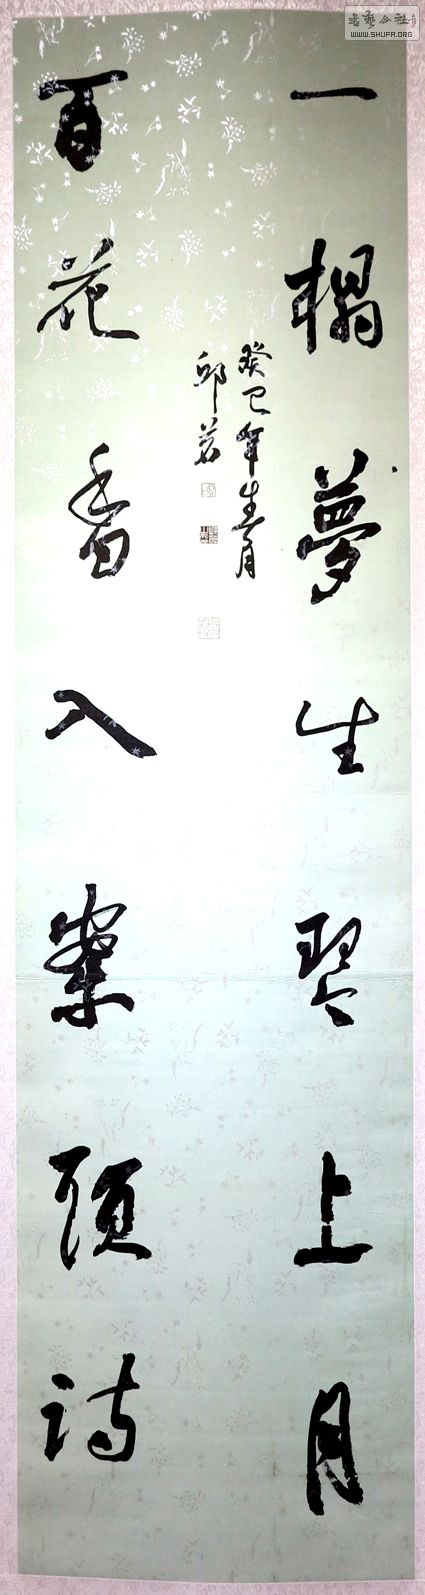 一榻夢生琴上月
百花香入案頭詩
癸巳年生春月
邱若
書藝公社
WWW.SHUFA.ORG